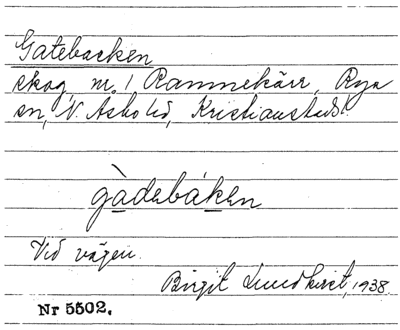 Gatebacken
skog, m. 1 Rammekärr, Rya
sn, V. Asbo hd, Kristianstads l.
gàdebáken
Vid vägen.
Birgit Lundkvist, 1938.
Nr 5502.